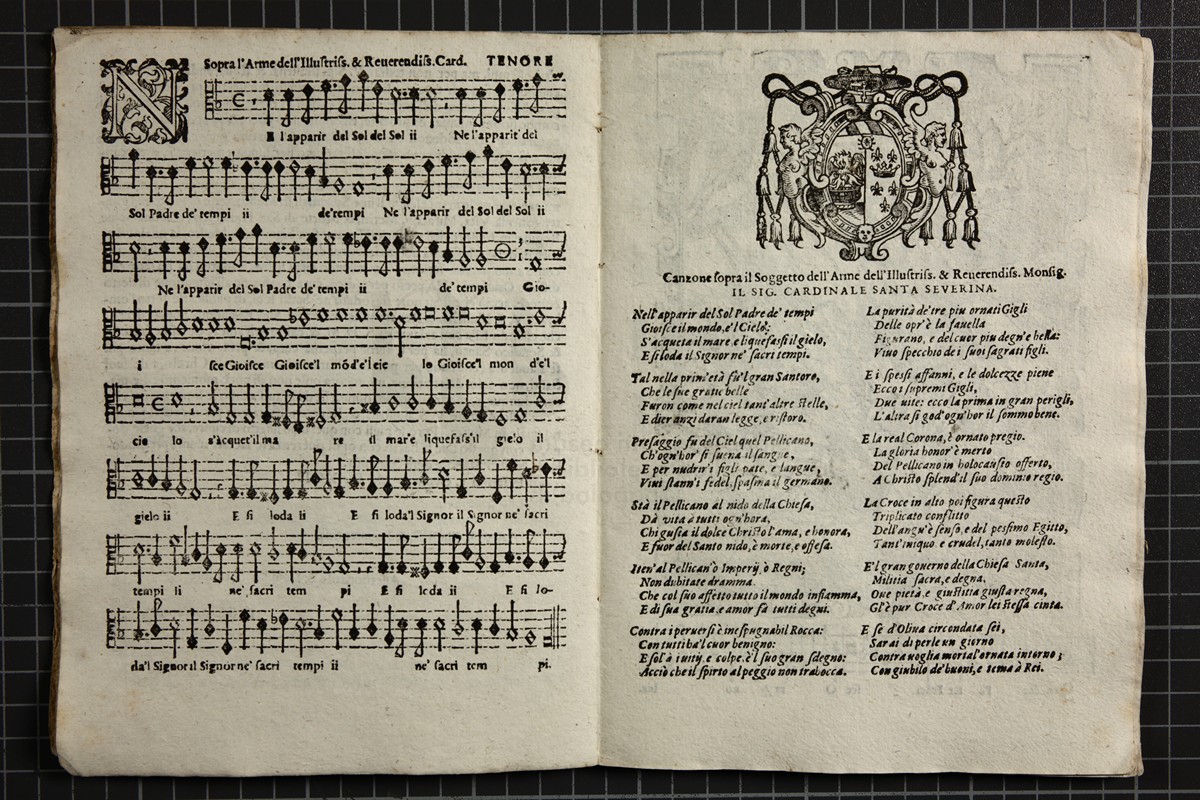 Sopra l'Arme dell'Illuſtriſs. & Reuerendiſs. Card. TENORE
N E l'apparir del Sol del Sol ii Ne l'apparir del
Sol Padre de' tempi ii de'tempi Ne l'apparir del Sol del Sol ii
Ne l'apparir del Sol Padre de' tempi ii de' tempi Gio-
i ſce Gioiſce Gioiſce'l mõd'e'l cie lo Gioiſce'l mon d'e'l
cie lo s'àcquet'il ma re il mar'e liquefaſs'il gielo il
gielo ii E ſi loda ii E ſi loda'l Signor il Signor ne' ſacri
tempi ii ne' ſacri tem pi E ſi loda ii E ſi lo-
da'l Signor il Signor ne' ſacri tempi ii ne' ſacri tem pi.
Canzone ſopra il Soggetto dell'Arme dell'Illuſtriſs. & Reuerendiſs. Monſig.
IL SIG. CARDINALE SANTA SEVERINA.
Nell'apparir del Sol Padre de' tempi
Gioiſce il mondo, e'l Cielo;
S'acqueta il mare, e liquefaſſi il gielo,
E ſi loda il Signor ne' ſacri tempi.
Tal nella prim'età fù'l gran Santoro,
Che le ſue gratie belle
Furon come nel ciel tant'altre ſtelle,
E dier anzi daran legge, e riſtoro.
Preſaggio fu del Ciel quel Pellicano,
Ch'ogn'hor ſi ſuena il ſangue,
E per nudrir i figli pate, e langue,
Viui ſtanni fedel, ſpaſma il germano.
Stà il Pellicano al nido della Chieſa,
Dà vita à tutti ogn'hora,
Chi guſta il dolce Chriſto l'ama, e honora,
E fuor del Santo nido, è morte, e offeſa.
Iten'al Pellican ò Imperij, ò Regni;
Non dubitate dramma.
Che col ſuo affetto tutto il mondo infiamma,
E di ſua gratia, e amor fà tutti degni.
Contra i peruerſi è ineſpugnabil Rocca:
Con tutti ha'l cuor benigno:
E ſol'à iutij, e colpe, è'l ſuo gran ſdegno:
Acciò che il ſpirto al peggio non trabocca.
La purità de' tre piu ornati Gigli
Delle opr'è la fauella
Figurano, e del cuor piu degn'e bella:
Viuo ſpecchio de i ſuoi ſagrati figli.
E i ſpeſſi affanni, e le dolcezze piene
Ecco i ſupremi Gigli,
Due uite: ecco la prima in gran perigli,
L'altra ſi god'ogn'hor il ſommo bene.
E la real Corona, è ornato pregio.
La gloria honor'è merto
Del Pellicano in holocauſto offerto,
A Chriſto ſplend'il ſuo dominio regio.
La Croce in alto poi figura queſto
Triplicato conflitto
Dell'angu'è ſenſo, e del peſſimo Egitto,
Tant'iniquo e crudel, tanto moleſto.
E'l gran gouerno della Chieſa Santa,
Militia ſacra, e degna,
Oue pietà, e giuſtitia giuſta regna,
Gl'è pur Croce d'Amor lei ſteſſa cinta.
E ſe d'Oliua circondata ſei,
Sarai di perle un giorno
Contra uoglia mortal'ornata intorno;
Con giubilo de' buoni, e tema à Rei.